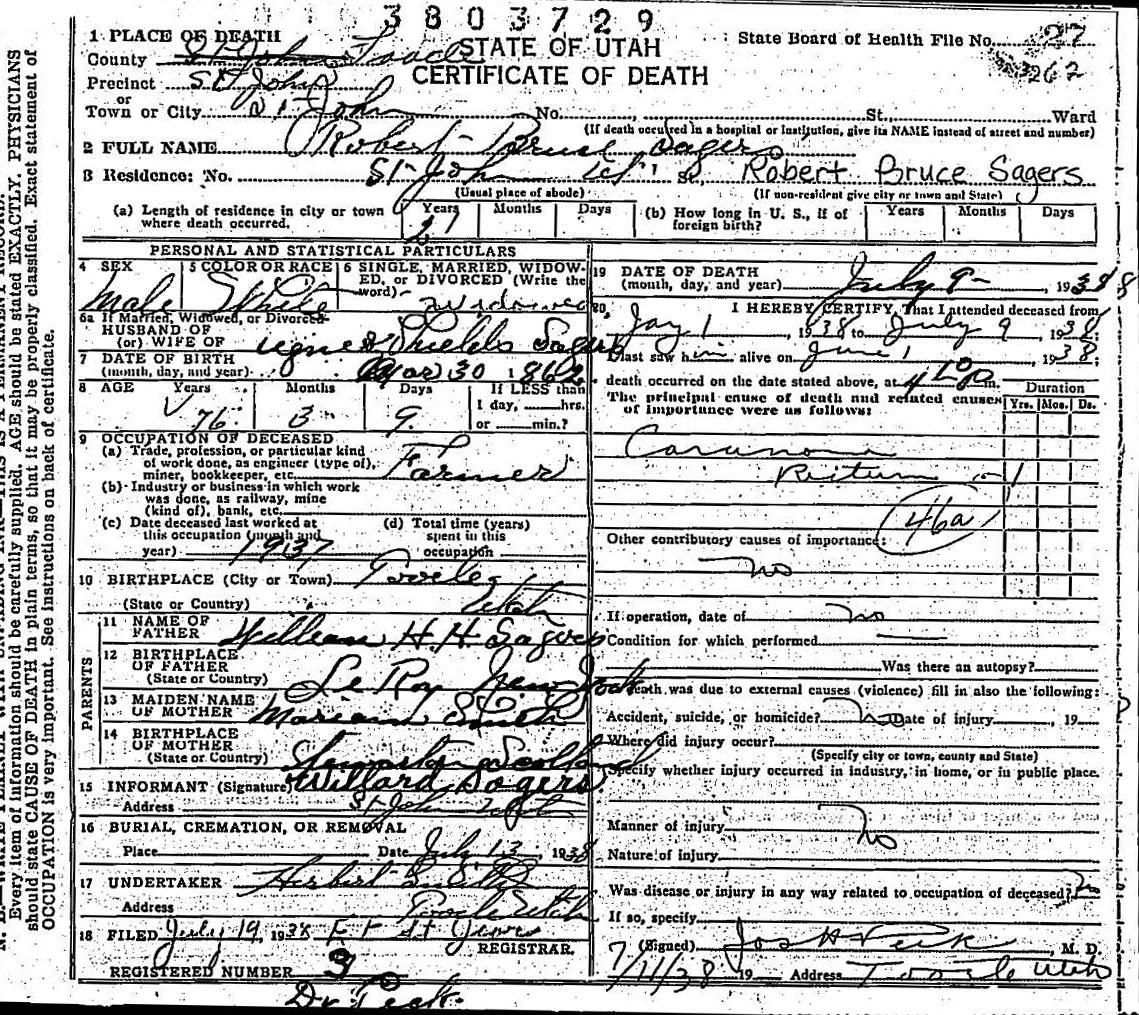 3803729
1 PLACE OF DEATH
STATE OF UTAH
CERTIFICATE OF DEATH
State Board of Health File No. 27
262
County St John Tooele
Precinct St John
or
Town or City St John No. St., Ward
(If death occurred in a hospital or institution, give its NAME instead of street and number)
2 FULL NAME Robert Bruce Sagers
3 Residence: No. St John Ut St., Robert Bruce Sagers
(Usual place of abode) (If non-resident give city or town and State)
(a) Length of residence in city or town where death occurred. Years Months Days
(b) How long in U. S., if of foreign birth? Years Months Days
PERSONAL AND STATISTICAL PARTICULARS
4 SEX 5 COLOR OR RACE 6 SINGLE, MARRIED, WIDOWED, OR DIVORCED (Write the word)
Male White Widowed
6a If Married, Widowed, or Divorced
HUSBAND OF
(or) WIFE OF Agnes Shields Sagers
7 DATE OF BIRTH
(month, day, and year) Mar 30 1862
8 AGE Years Months Days If LESS than
76 3 9 1 day, hrs.
or min.?
9 OCCUPATION OF DECEASED
(a) Trade, profession, or particular kind
of work done, as engineer (type of),
miner, bookkeeper, etc. Farmer
(b) Industry or business in which work
was done, as railway, mine
(kind of), bank, etc.
(c) Date deceased last worked at
this occupation (month and
year) 1937
(d) Total time (years)
spent in this
occupation
10 BIRTHPLACE (City or Town) Tooele
(State or Country) Utah
PARENTS
11 NAME OF
FATHER William H. H. Sagers
12 BIRTHPLACE
OF FATHER
(State or Country) Le Roy New York
13 MAIDEN NAME
OF MOTHER Mariam Smith
14 BIRTHPLACE
OF MOTHER
(State or Country) Scotland
15 INFORMANT (Signature) Willard Sagers
Address St John Utah
16 BURIAL, CREMATION, OR REMOVAL
Place Date July 13, 1938
17 UNDERTAKER Herbert
Address Tooele Utah
18 FILED July 19, 1938
REGISTRAR.
REGISTERED NUMBER 3
Dr. Peck.
19 DATE OF DEATH
(month, day, and year) July 9 - , 1938 8
20. I HEREBY CERTIFY, That I attended deceased from
Jay 1, 1938 to July 9, 1938;
I last saw him alive on June 1, 1938;
death occurred on the date stated above, at m.
The principal cause of death and related causes of importance were as follows:
Duration
Yrs. Mos. Ds.
46a
Other contributory causes of importance:
no
If operation, date of no
Condition for which performed
Was there an autopsy?
If death was due to external causes (violence) fill in also the following:
Accident, suicide, or homicide? no Date of injury , 19
Where did injury occur?
(Specify city or town, county and State)
Specify whether injury occurred in industry, in home, or in public place.
Manner of injury no
Nature of injury
Was disease or injury in any way related to occupation of deceased? no
If so, specify
(Signed) Jos H Peck M. D.
7/11/38 19 Address Tooele Utah
Every item of information should be carefully supplied. AGE should be stated EXACTLY. PHYSICIANS
should state CAUSE OF DEATH in plain terms, so that it may be properly classified. Exact statement of
OCCUPATION is very important. See instructions on back of certificate.